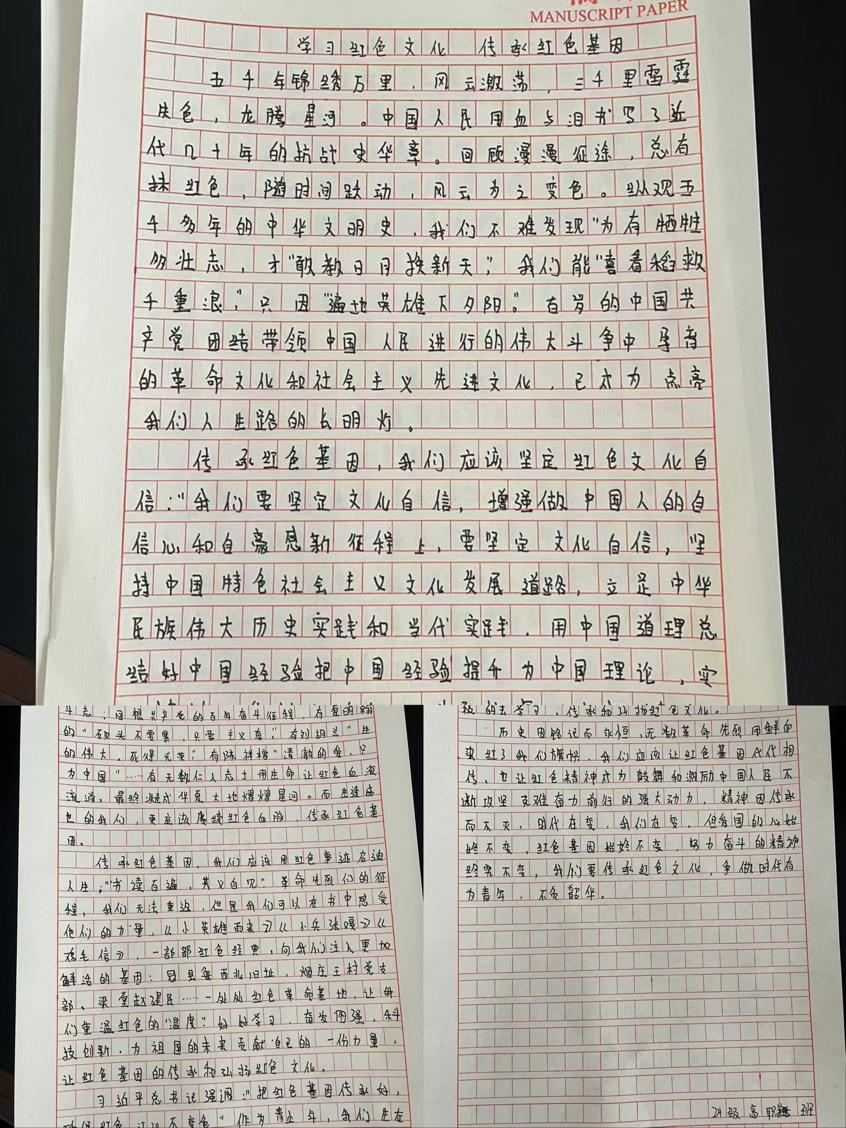 MANUSCRIPT PAPER
学习红色文化 传承红色基因
五千年锦绣万里，风云激荡，三千里雷霆
生色，龙腾星河。中国人民用血与泪书写了近
代几十年的抗战史华章。回顾漫漫征途，总有
抹红色，随时间跃动，风云为之变色。纵观五
千多年的中华文明史，我们不难发现"为有牺牲
多壮志，才"敢教日月换新天"，我们能"喜看稻菽
千重浪"，只因"遍地英雄下夕阳"。百岁的中国共
产党团结带领中国人民进行的伟大斗争中孕育
的革命文化和社会主义先进文化，已成为点亮
我们人生路的长明灯。
传承红色基因，我们应该坚定红色文化自
信："我们要坚定文化自信，增强做中国人的自
信心和自豪感新征程上，要坚定文化自信，坚
持中国特色社会主义文化发展道路，立足中华
民族伟大历史实践和当代实践，用中国道理总
结好中国经验把中国经验提升为中国理论，实
斗志；回想共产党的百年奋斗征程，有夏明翰
的"砍头不要紧，只要主义真"；有刘胡兰"生
的伟大，死得光荣"；有陈祥榕"清澈的爱，只
为中国"……有无数仁人志士用生命让红色血液
流淌，最终凝成华夏大地熠熠星河。而生逢
的我们，更应该赓续红色血脉，传承红色基
因。
传承红色基因，我们应该用红色事迹
人生："书读百遍，其义自见"革命先烈们的征
程，我们无法重返，但是我们可以在书中感受
他们的力量，《小英雄雨来》《小兵张嘎》《
鸡毛信》，一部部红色经典，向我们注入更加
鲜活的基因；冠县鲁西北旧址，烟庄王村党支
部、梁堂赵建民……一处处红色革命基地，让我
们重温红色的"温度"好好学习，奋发图强，科
技创新，为祖国的未来贡献自己的一份力量，
让红色基因的传承和弘扬红色文化。
习近平总书记强调："把红色基因传承好，
确保红色江山不变色"作为青少年，我们生在
的去学习、传承和弘扬红色文化。
历史因铭记而永恒，无数革命先烈用鲜血
染红了我们旗帜，我们应该让红色基因代代相
传，也让红色精神成为鼓舞和激励中国人民不
断攻坚克难奋力前行的强大动力，精神因传承
而不灭，时代在变，我们在变，但爱国的心始
终不变，红色基因始终不变，努力奋斗的精神
终究不变，我们要传承红色文化，争做时代有
为青年，不负韶华。
级高职 班